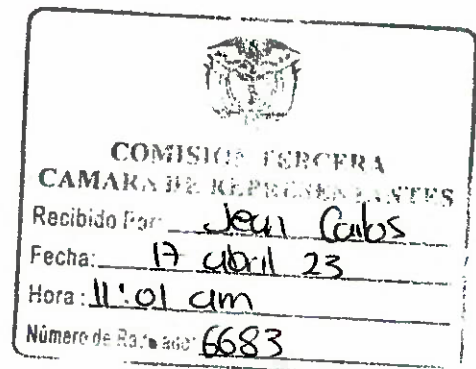 COMISION TERCERA
CAMARA DE REPRESENTANTES
Recibido Por: Jean Carlos
Fecha: 17 abril 23
Hora: 11:01 am
Número de Radicado: 6683